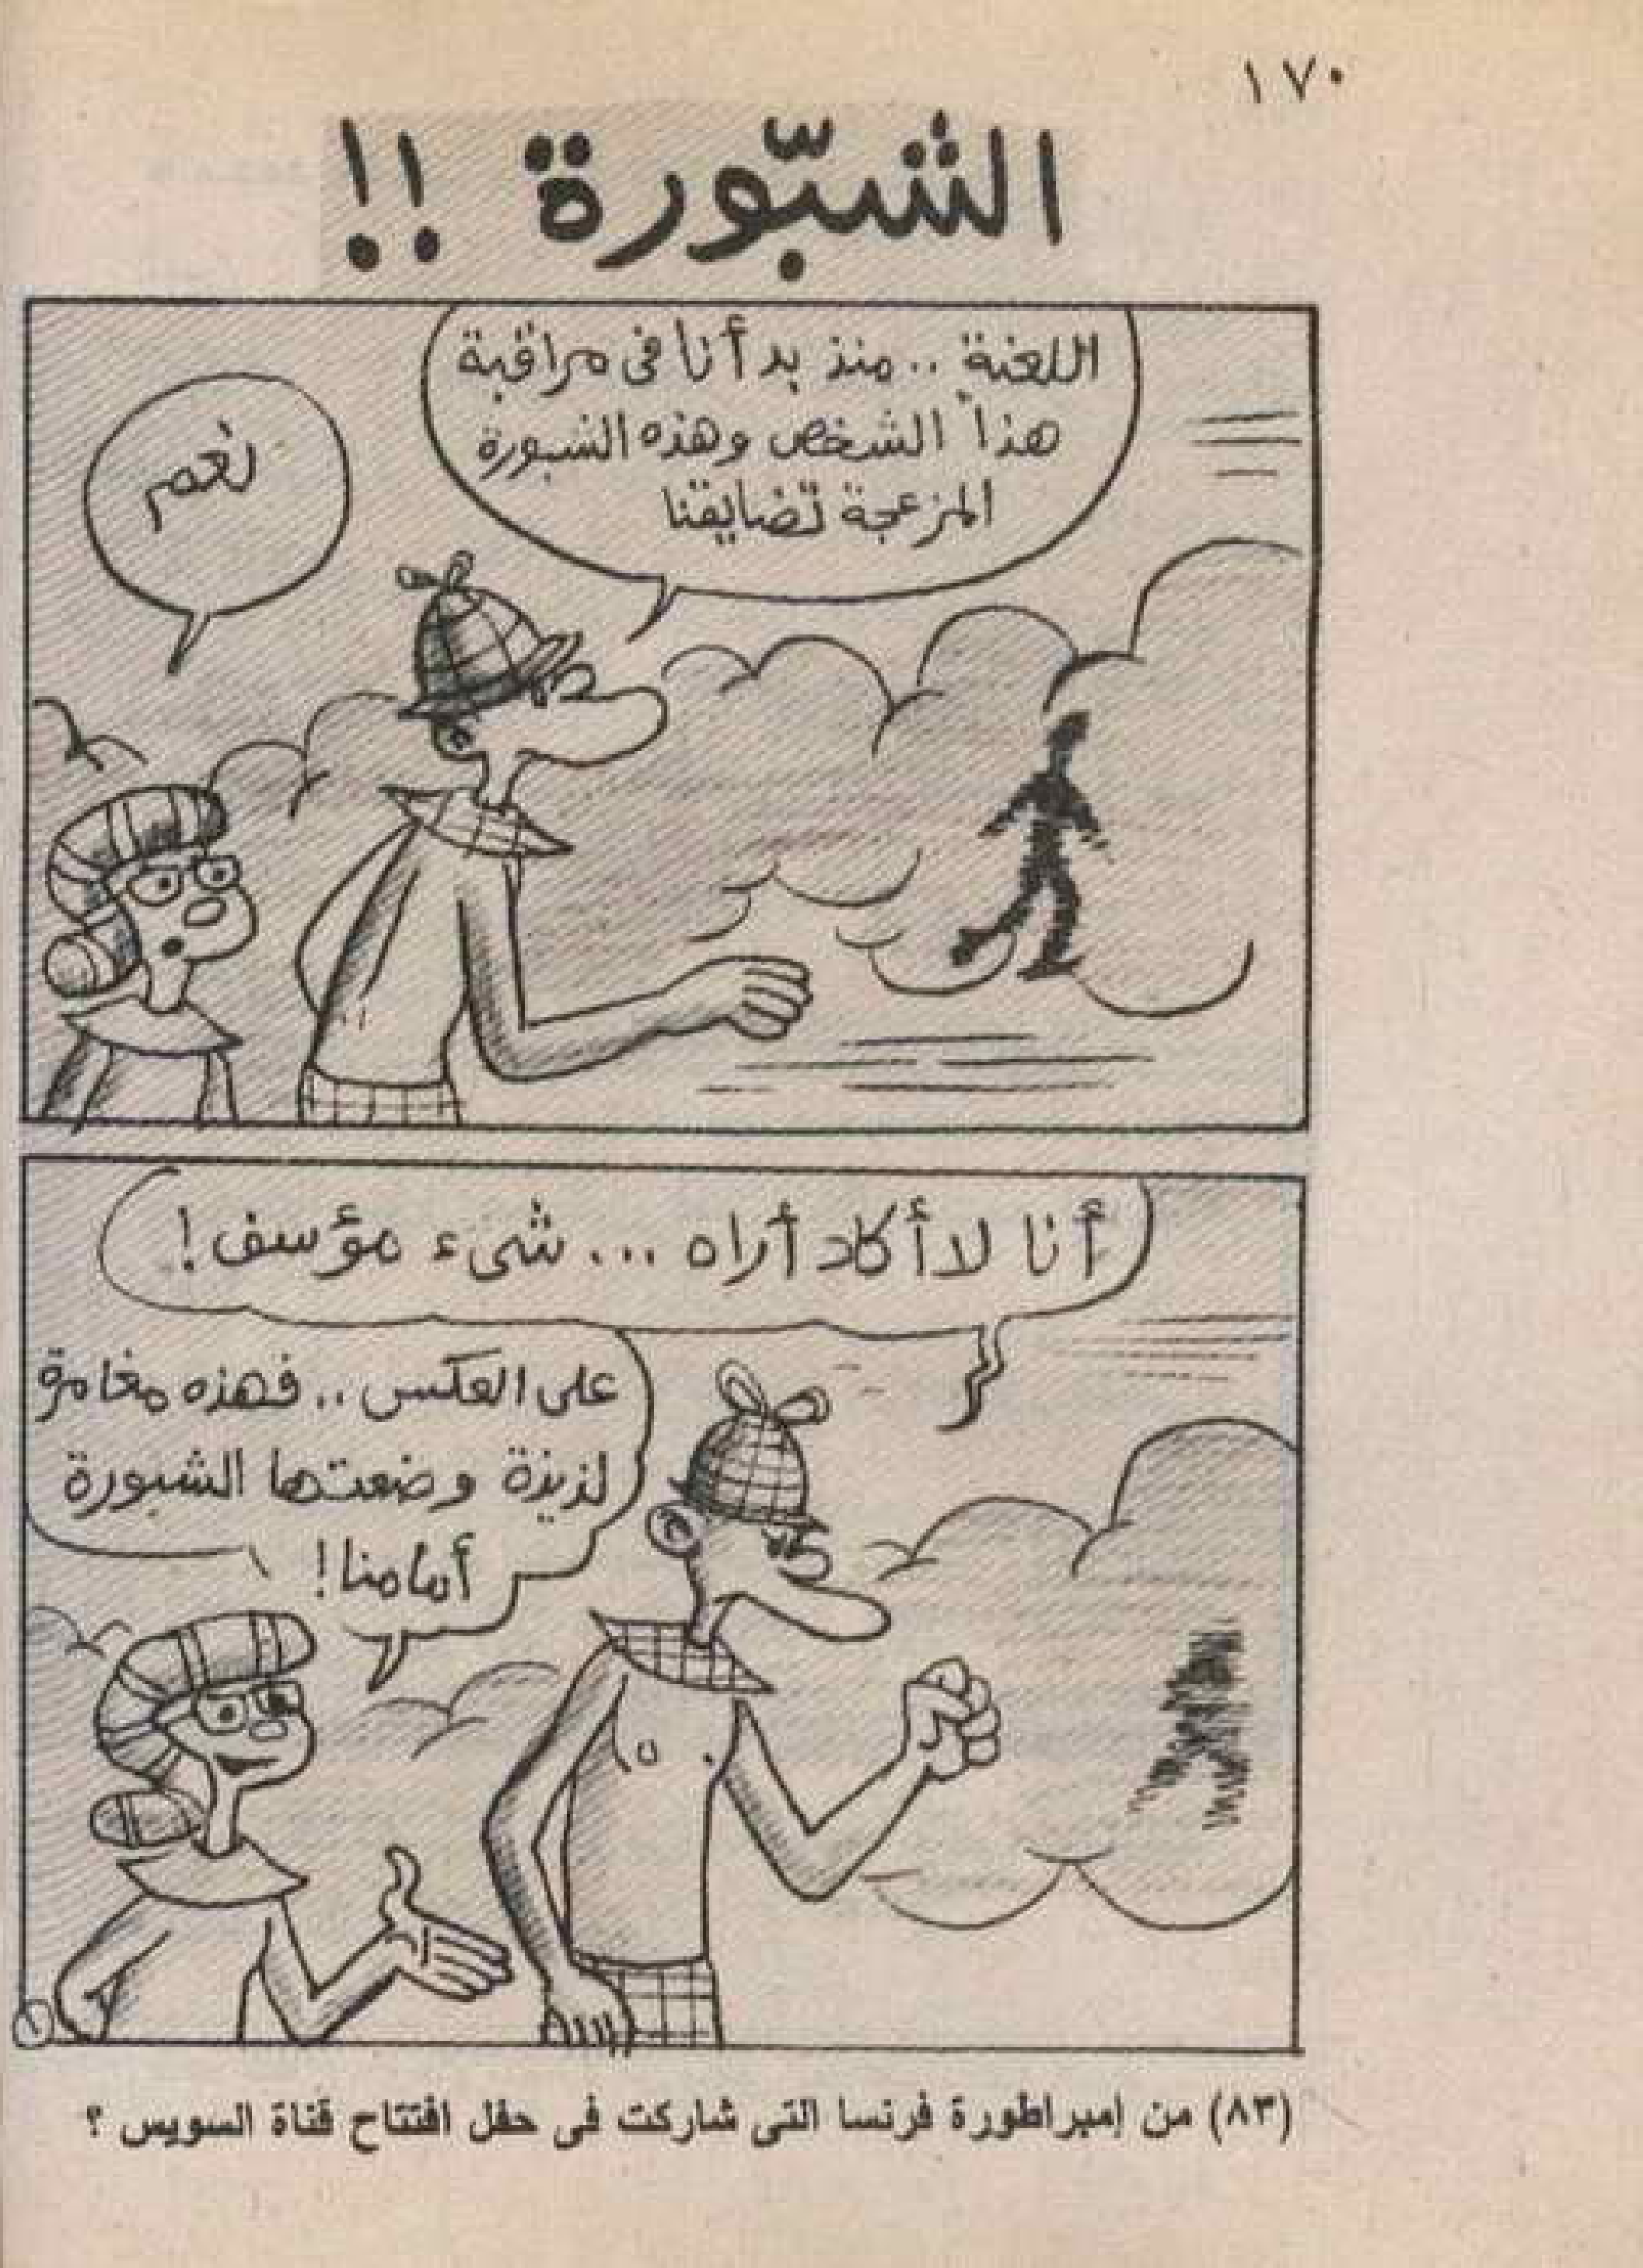 ١٧٠
الشبّورة !!
اللعنة .. منذ بدأنا فى مراقبة
هذا الشخص وهذه الشبورة
المزعجة تضايقنا
نعم
أنا لا أكاد أراه ... شىء مؤسف !
على العكس .. فهذه مغامرة
لذيذة وضعتها الشبورة
أمامنا !
١
(٨٣) من إمبراطورة فرنسا التى شاركت فى حفل افتتاح قناة السويس ؟